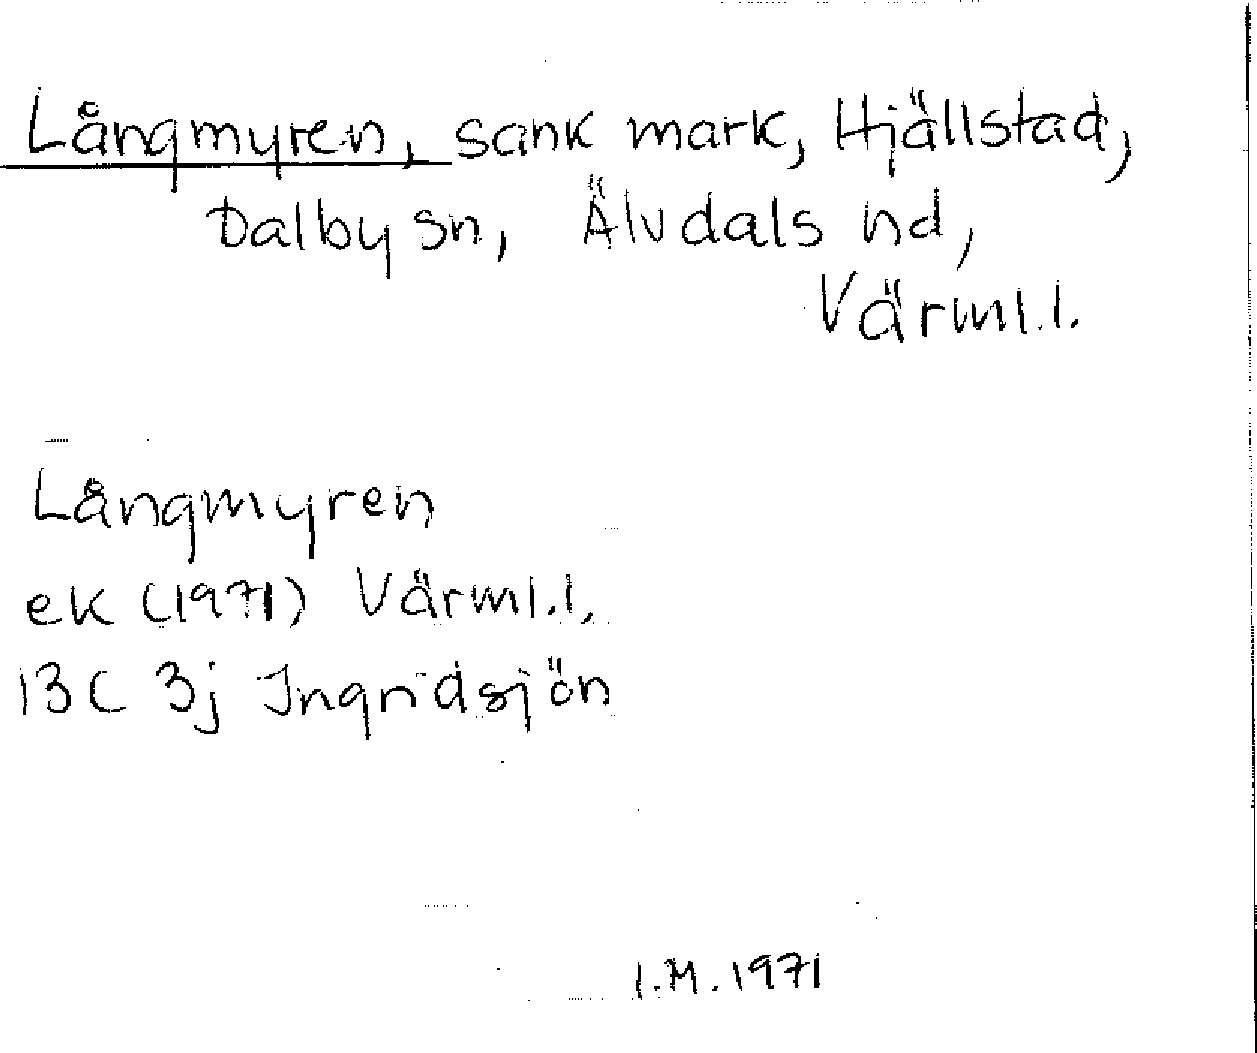 Långmyren, sank mark, Hjällstad,
Dalby sn, Älvdals hd,
Värml.l.
Långmyren
ek (1971) Värml.l.
13C 3j Ingridsjön
I.M. 1971